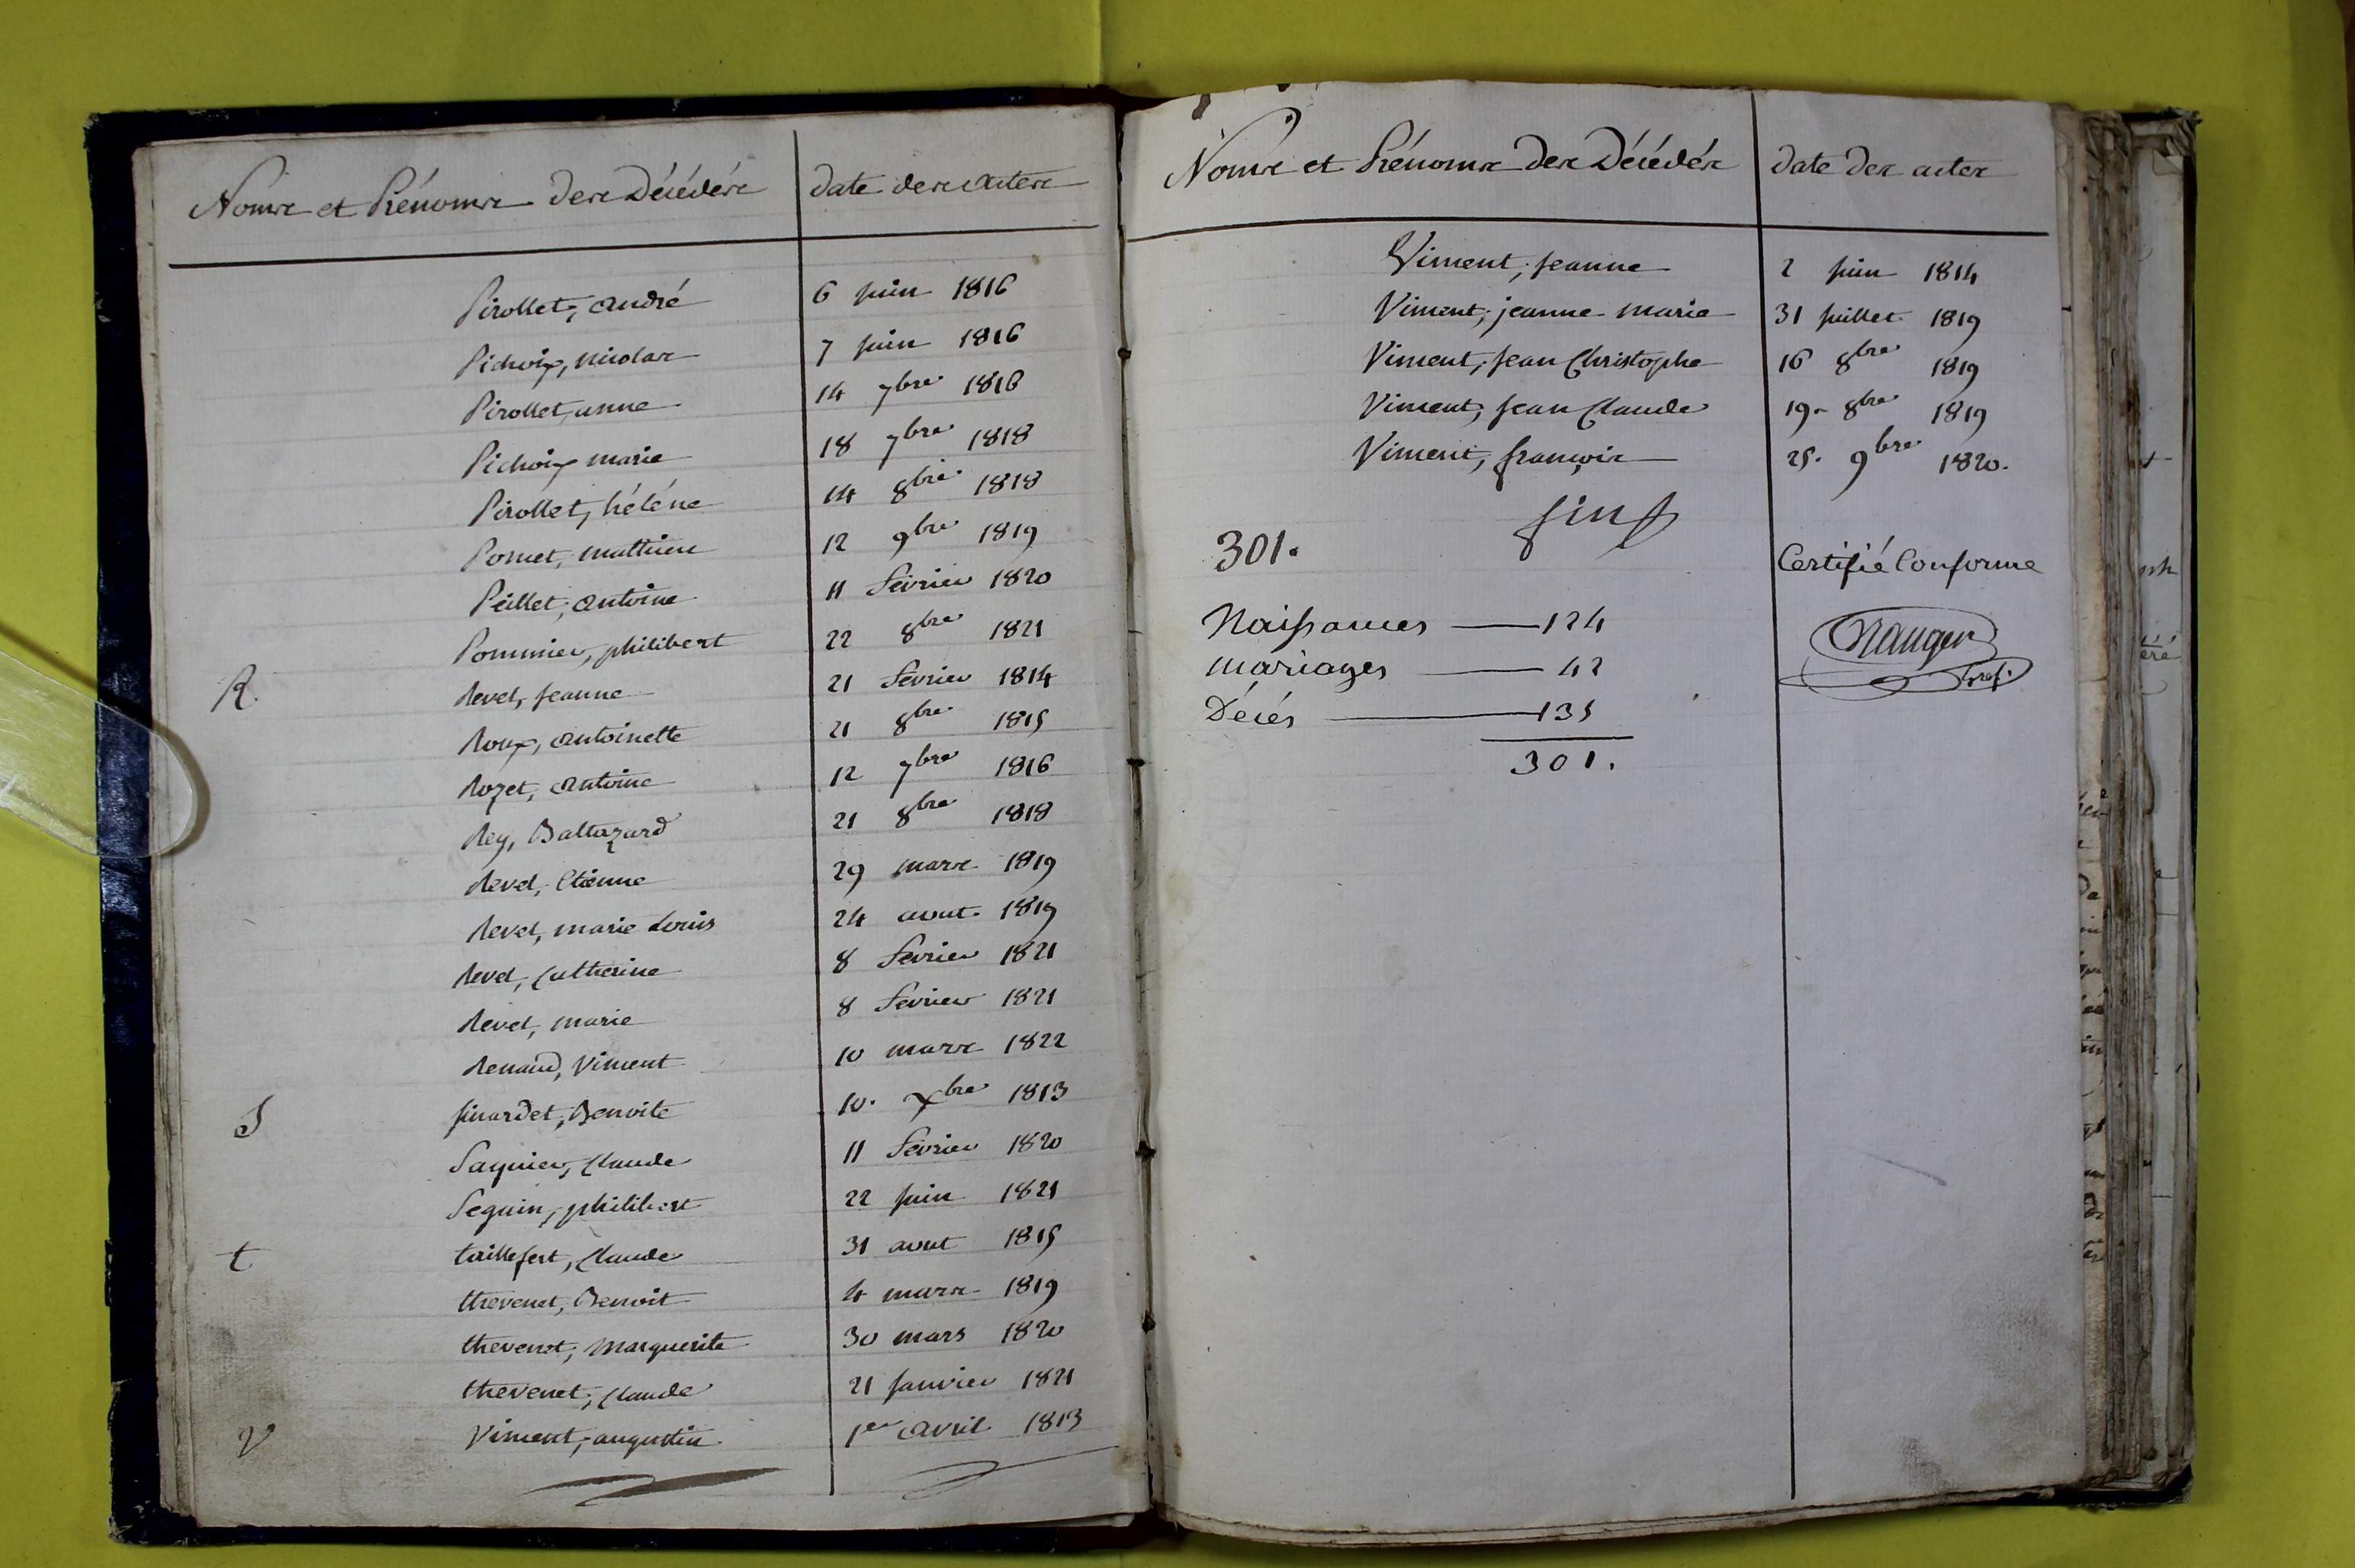 Noms et Prénoms des Décédés date des actes
Pirollet, andré 6 juin 1816
Pichoix, nicolas 7 juin 1816
Pirollet, anne 14 7bre 1816
Pichoix marie 18 7bre 1818
Pirollet, héléne 14 8bre 1818
Pomet, mathieu 12 9bre 1819
Peillet, antoine 11 fevrier 1820
Pommier, philibert 22 8bre 1821
R. Revel, jeanne 21 fevrier 1814
Roux, antoinette 21 8bre 1815
Rozet, antoine 12 7bre 1816
Rey, Baltazard 21 8bre 1818
Revel, Etienne 29 mars 1819
Revel, marie Louis 24 aout 1819
Revel, Catherine 8 fevrier 1821
Revel, marie 8 fevrier 1821
Renaud, Viment 10 mars 1822
S Sinardet, Benoite 10. Xbre 1813
Saquier, Claude 11 fevrier 1820
Seguin, philibert 22 juin 1821
t taillefert, Claude 31 aout 1815
thevenet, Benoit 4 mars 1819
thevenet, Marguerite 30 mars 1820
thevenet, Claude 21 janvier 1821
V Viment, augustin 1er avril 1813
Noms et Prénoms des Décédés date des actes
Viment, jeanne 2 juin 1814
Viment, jeanne marie 31 juillet 1819
Viment, jean Christophe 16 8bre 1819
Viment, jean Claude 19 8bre 1819
Viment, françois 25. 9bre 1820.
fin
301. Certifié Conforme
Naissances 124
mariages 42
Décés 135
301.